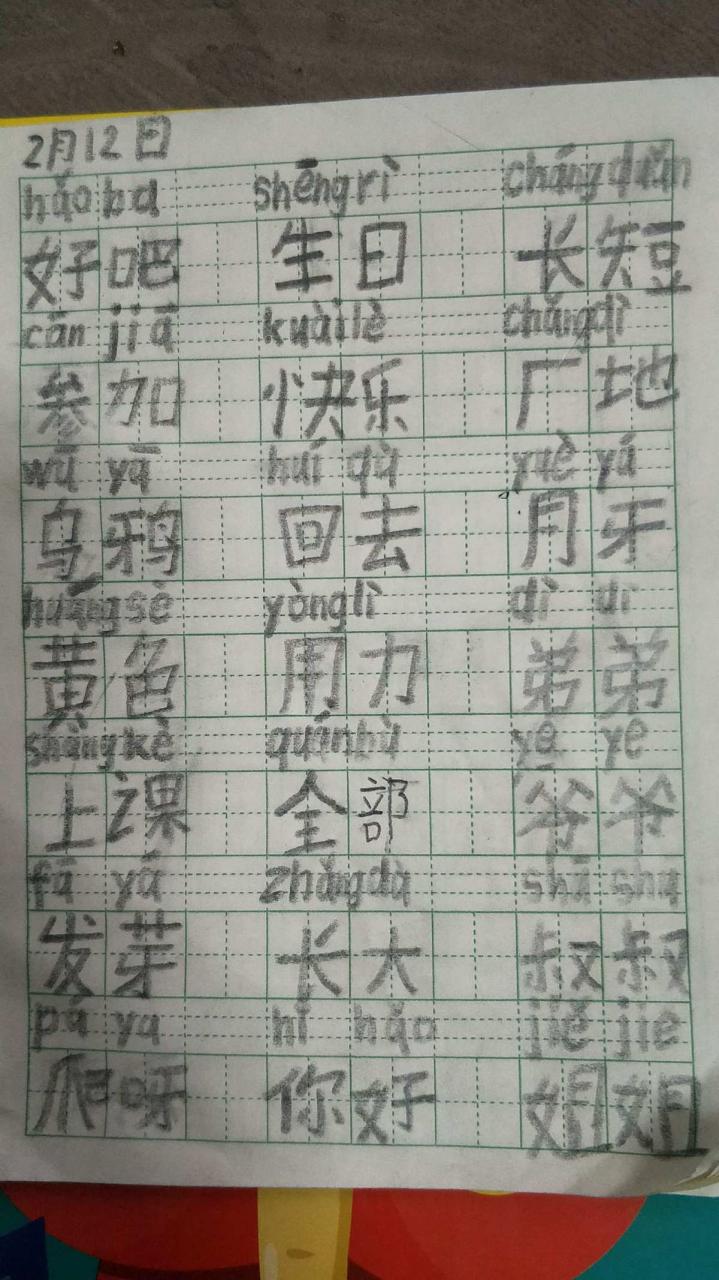 2月12日
hǎo ba shēng rì cháng duǎn
好吧 生日 长短
cān jiā kuài lè chǎng dì
参加 快乐 厂地
wū yā huí qù yuè yá
乌鸦 回去 月牙
huáng sè yòng lì dì di
黄色 用力 弟弟
shàng kè quán bù yé ye
上课 全部 爷爷
fā yá zhǎng dà shū shu
发芽 长大 叔叔
pá ya nǐ hǎo jiě jie
爬呀 你好 姐姐